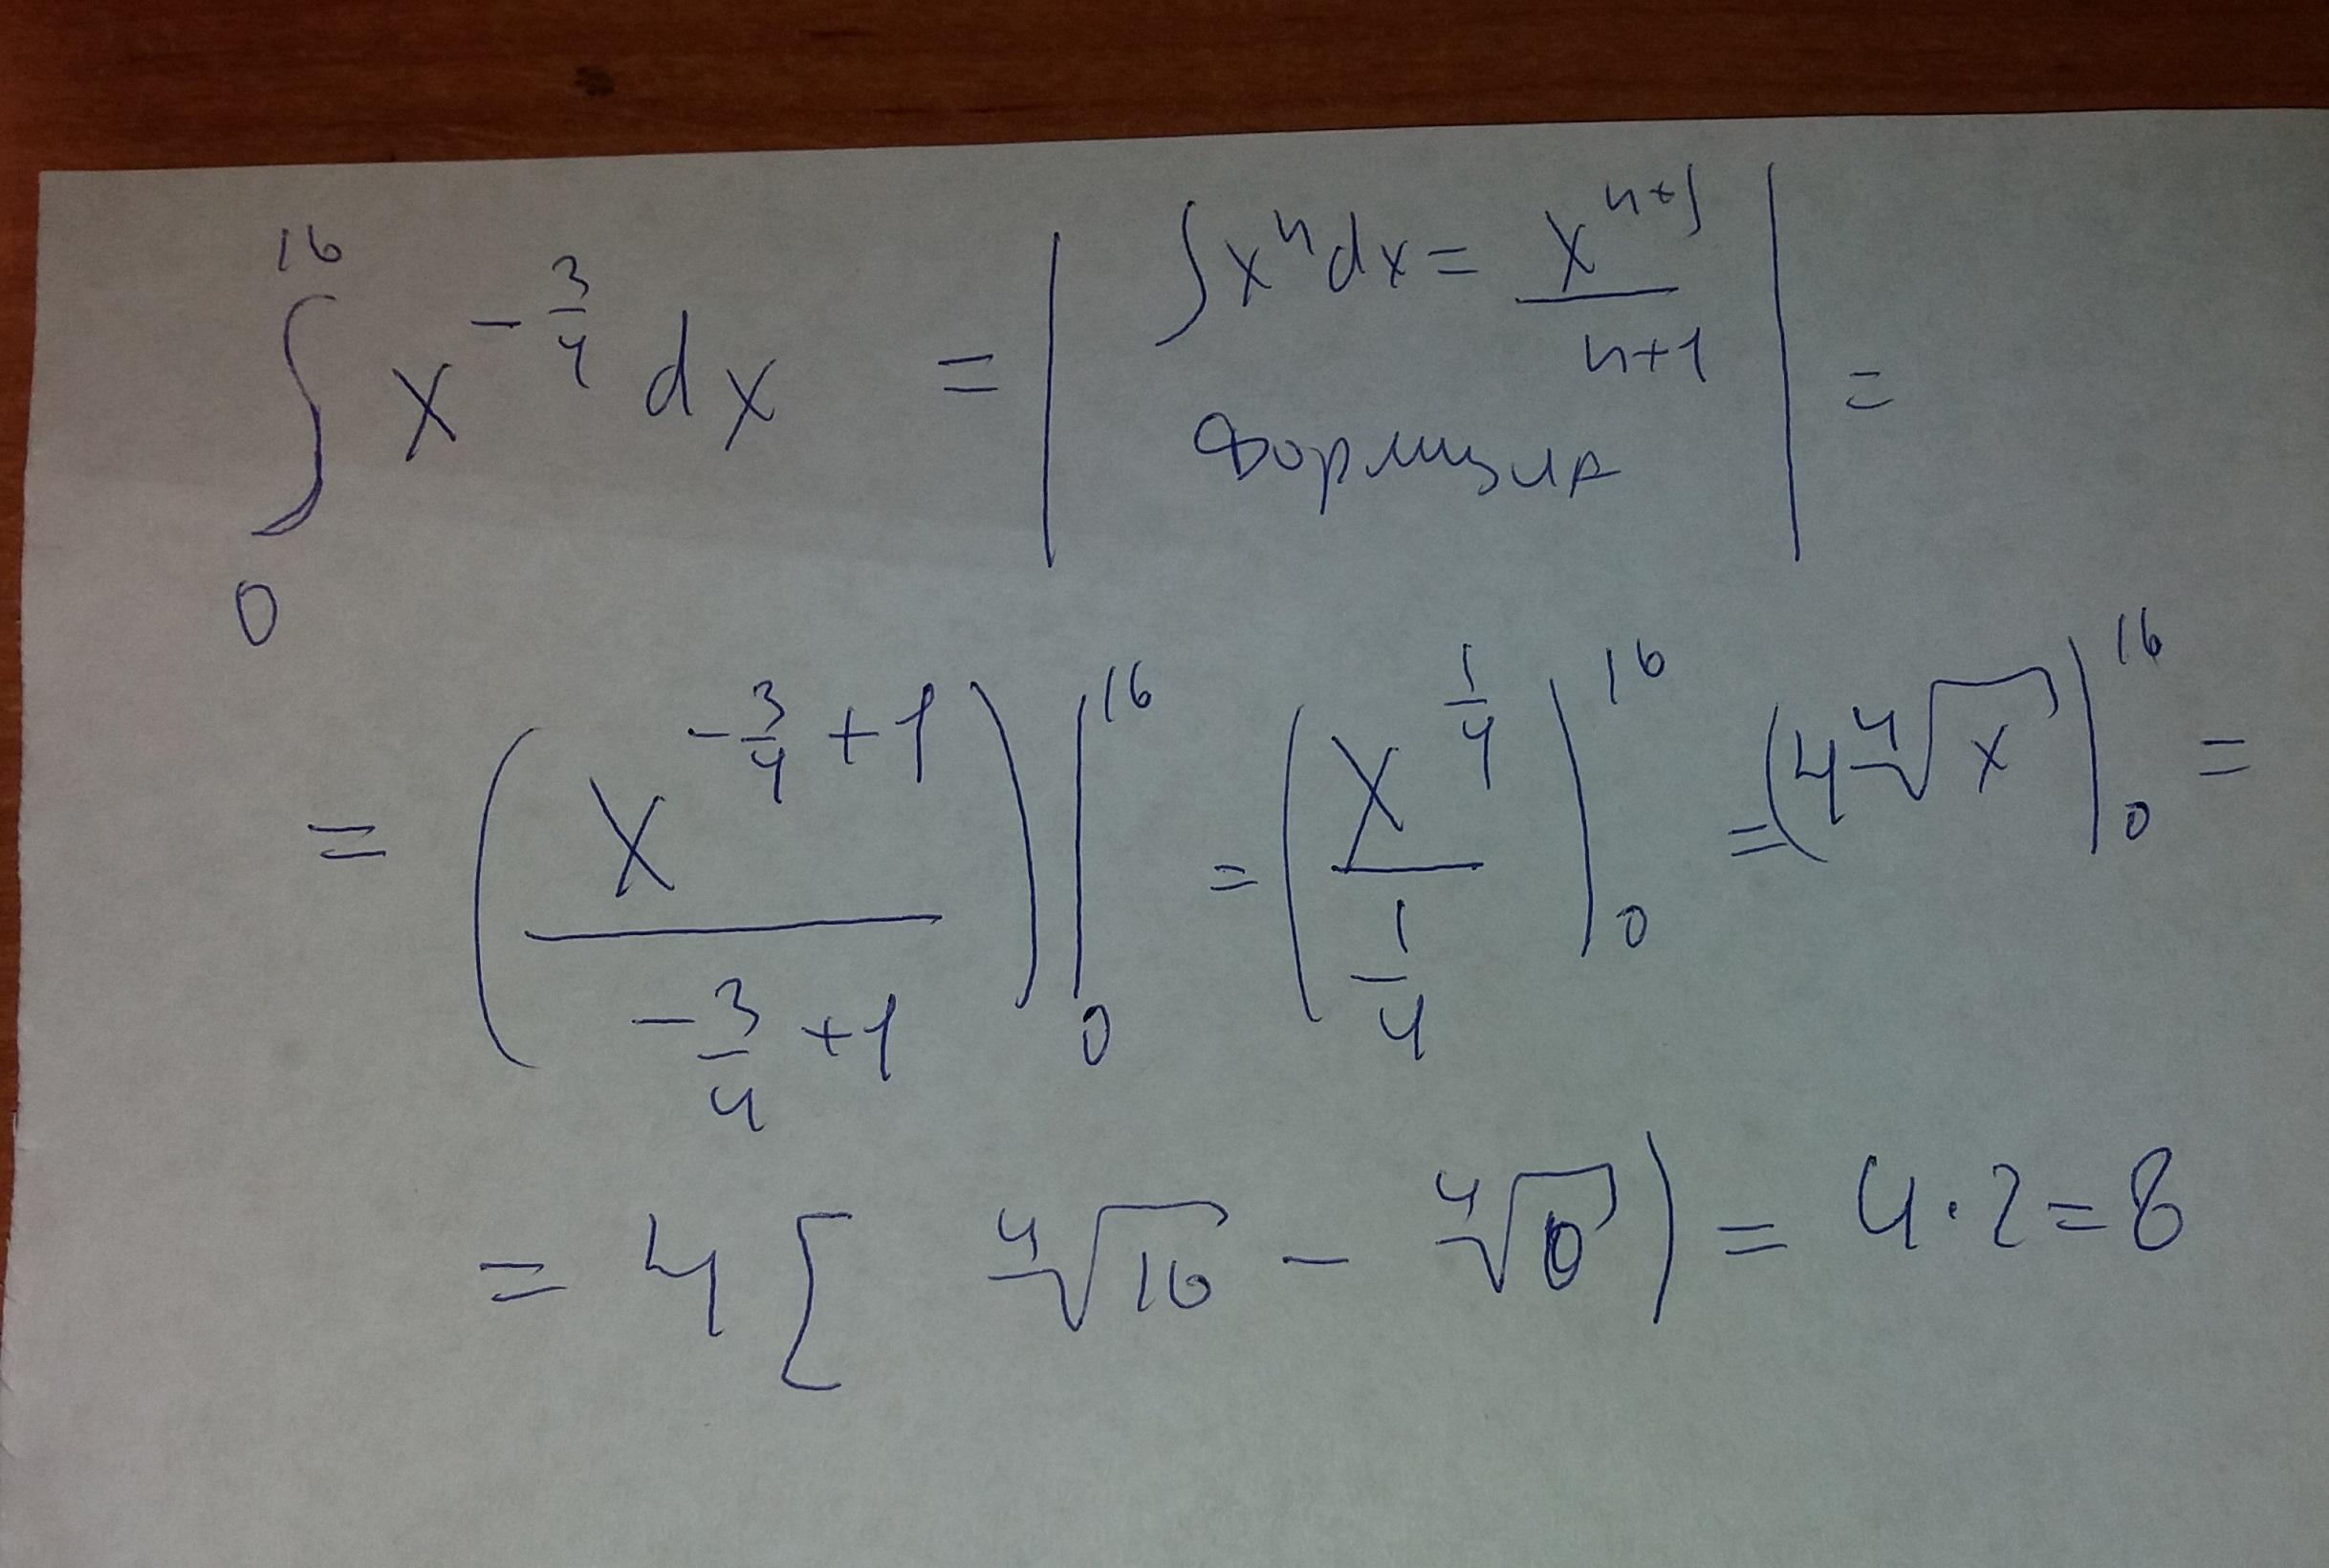 ∫₀¹⁶ x^(-3/4) dx = | ∫xⁿdx = x^(n+1)/(n+1) | =
формула
= (x^(-3/4+1)/(-3/4+1))|₀¹⁶ = (x^(1/4)/(1/4)|₀¹⁶ = (4⁴√x|₀¹⁶ =
= 4[ ⁴√16 - ⁴√0) = 4·2=8